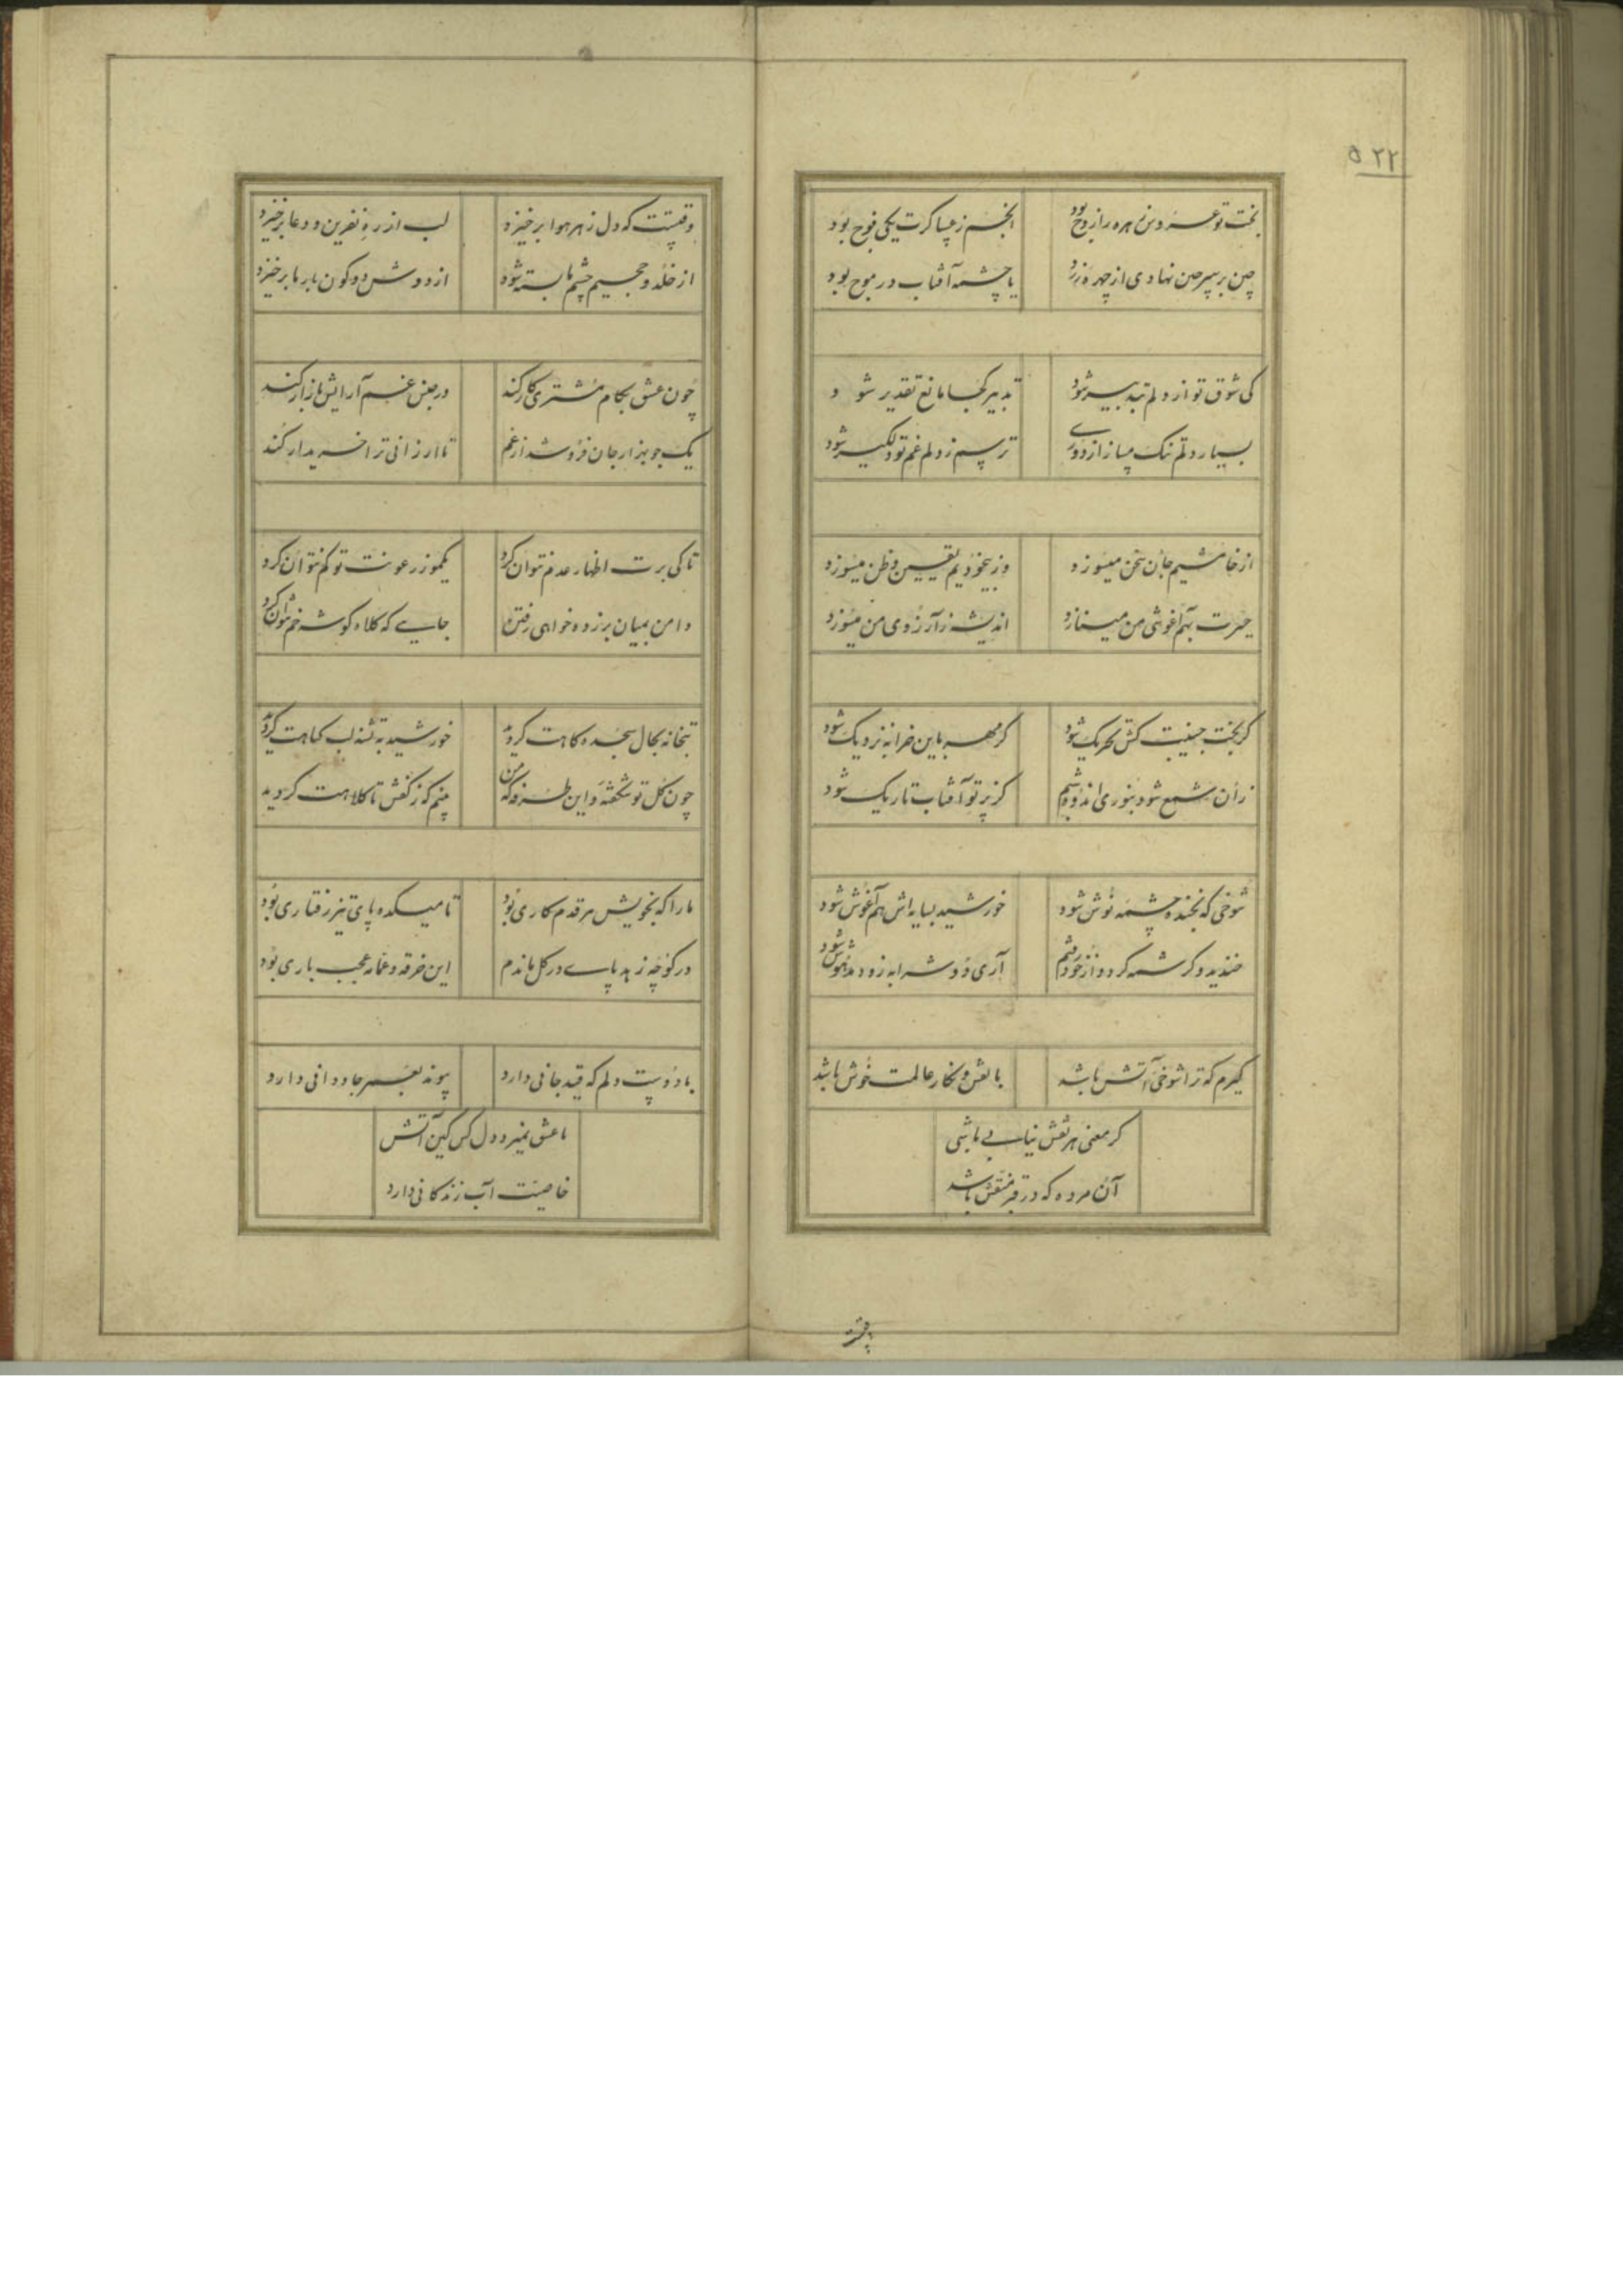 ۵۲۲
بخت تو عروس زهره را زوج بود
انجم ز عساکرت یکی فوج بود
چین بر سپر چین نهادی از چهره زرد
یا چشمه آفتاب در موج بود
کی شوق تو از دلم بتدبیر شود
تدبیر کجا مانع تقدیر شود
بسیار دلم تنک مساز از دوری
ترسم ز دلم غم تو دلکیر شود
از خامشیم جان سخن میسوزد
وز بیخودیم یقین و ظن میسوزد
حسرت بهم آغوشی من مینازد
اندیشه ز آرزوی من میسوزد
کر بخت جنیبت کش تحریک شود
کر مهر باین خرابه نزدیک شود
زان شمع شود بنوری اندوده شبم
کز پرتو آفتاب تاریک شود
شوخی که بخنده چشمه نوش شود
خورشید بسایه اش هم آغوش شود
خندید و کرشمه کرد و از خود رفتم
آری دو شرابه زود مدهوش شود
کیرم که ترا شوخی آتش باشد
با نقش و نکار عالمت خوش باشد
کر معنی هر نقش نیابی باشی
آن مرده که در قبر منقش باشد
وقتیست که دل ز هر هوا برخیزد
لب از ره نفرین و دعا برخیزد
از خلد و جحیم چشم ما بسته شود
از دوش دو کون بار ما برخیزد
چون عشق بکام مشتری کار کند
در جنس غم آرایش بازار کند
یک جو بهزار جان فروشد از غم
تا ارزانی ترا خریدار کند
تا کی برت اظهار عدم نتوان کرد
یکمو ز رعونت تو کم نتوان کرد
دامن بمیان برزده خواهی رفتن
جایی که کلاه کوشه خم نتوان کرد
بتخانه بحال سجده کاهت کردید
خورشید به تشنه لب کیاهت کردید
چون کل تو شکفته و این طرفه که من
منم که ز کفش تا کلاهت کردید
ما را که بخویش هر قدم کاری بود
تا میکده پای تیز رفتاری بود
در کوچه زهد پای در کل ماندم
این خرقه و عمامه عجب باری بود
با دوست دلم که قید جانی دارد
پیوند بعمر جاودانی دارد
با عشق نمیرد دل کس کین آتش
خاصیت آب زندکانی دارد